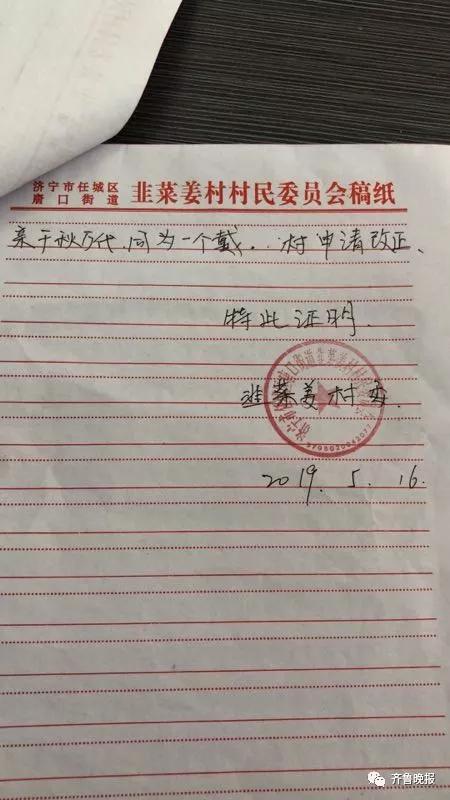 济宁市任城区
唐口街道
韭菜姜村村民委员会稿纸
亲千秋万代,同为一个戴。村申请改正、
特此证明.
韭菜姜村委.
2019. 5. 16.
齐鲁晚报